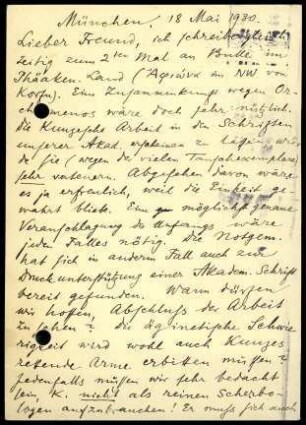 München, 18 Mai 1930.
Lieber Freund, ich schreibe gleich
zeitig zum 2ten Mal an Bulle im
Phäaken-Land ( im NW von
Korfu). Eine Zusammenkunft wegen Or-
chomenos wäre doch sehr nützlich.
die Kunzesche Arbeit in den Schriften
unserer Akad. erscheinen zu lassen wird
da sie (wegen der vielen Tauschexemplare)
sehr verteuern. Abgesehen davon wäre
es ja erfreulich, weil die Einheit ge-
wahrt bliebe. Eine möglichst genaue
Veranschlagung des Umfangs wäre
jeden Falles nötig. Die Notgem.
hat sich in anderem Fall auch zur
Druckunterstützung einer Akadem. Schrift
bereit gefunden. Wann dürfen
wir hoffen, Abschluss der Arbeit
zu sehen? die äginetische Schwie-
rigkeit wird wohl auch Kunzes
rettende Arme erbitten müssen?
Jedenfalls müssen wir sehr bedacht
sein, K. nicht als reinen Scherbo-
logen aufzubrauchen! Er muss sich auch